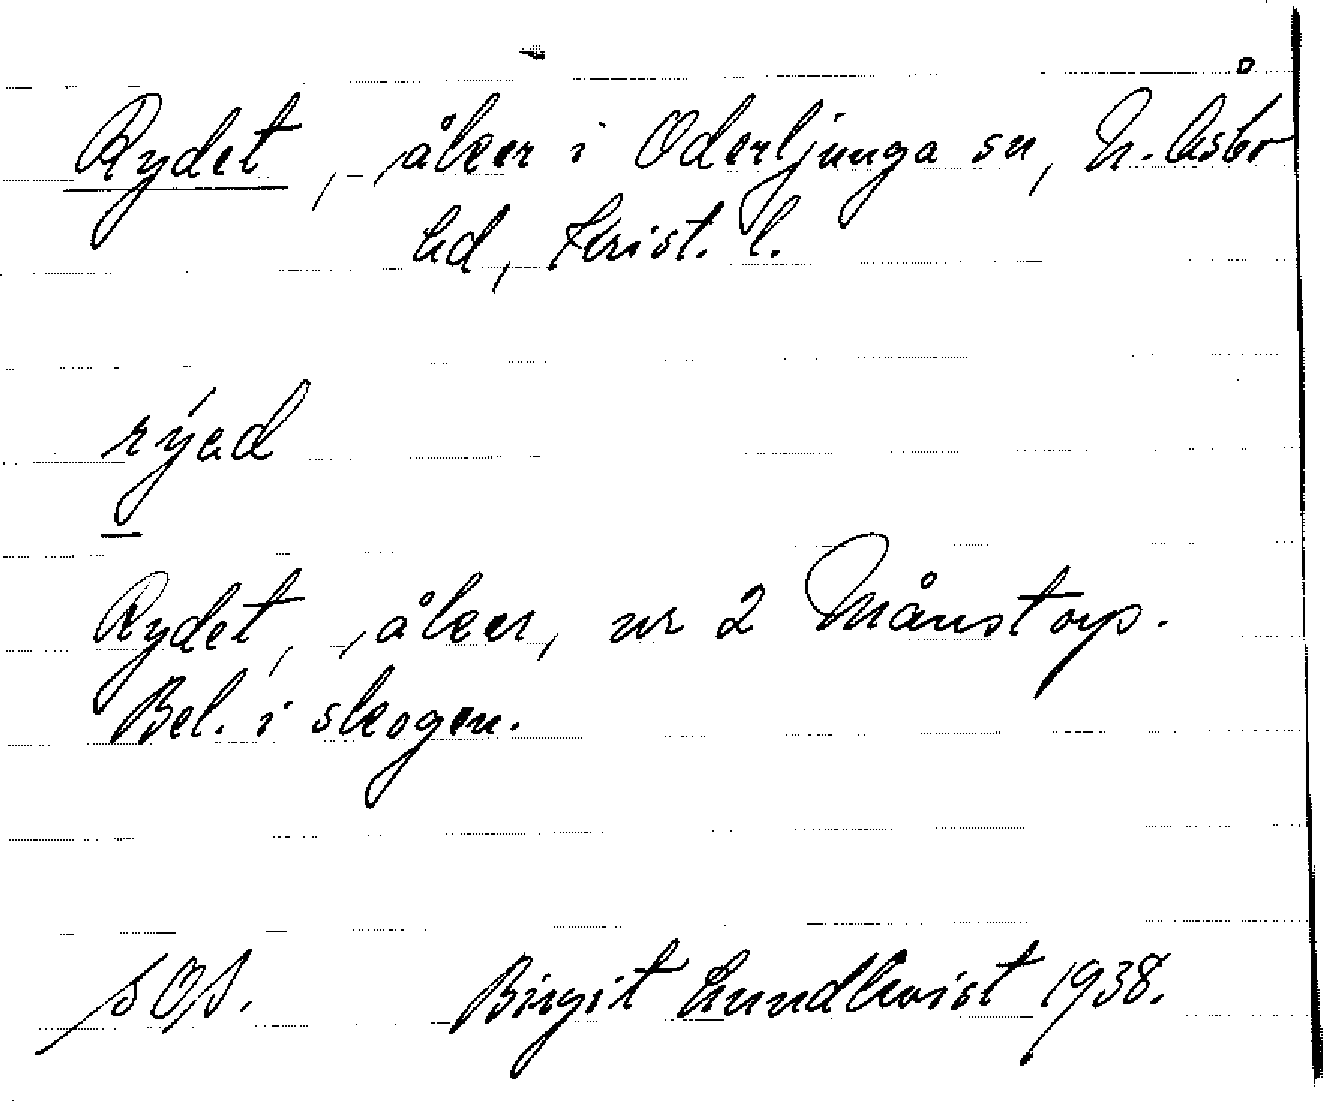 Rydet, åker i Oderljunga sn, N. Åsbo
hd, Krist. l.
rýad
Rydet, åker, nr 2 Månstorp.
Bel. i skogen.
SOA. Birgit Lundkvist 1938.